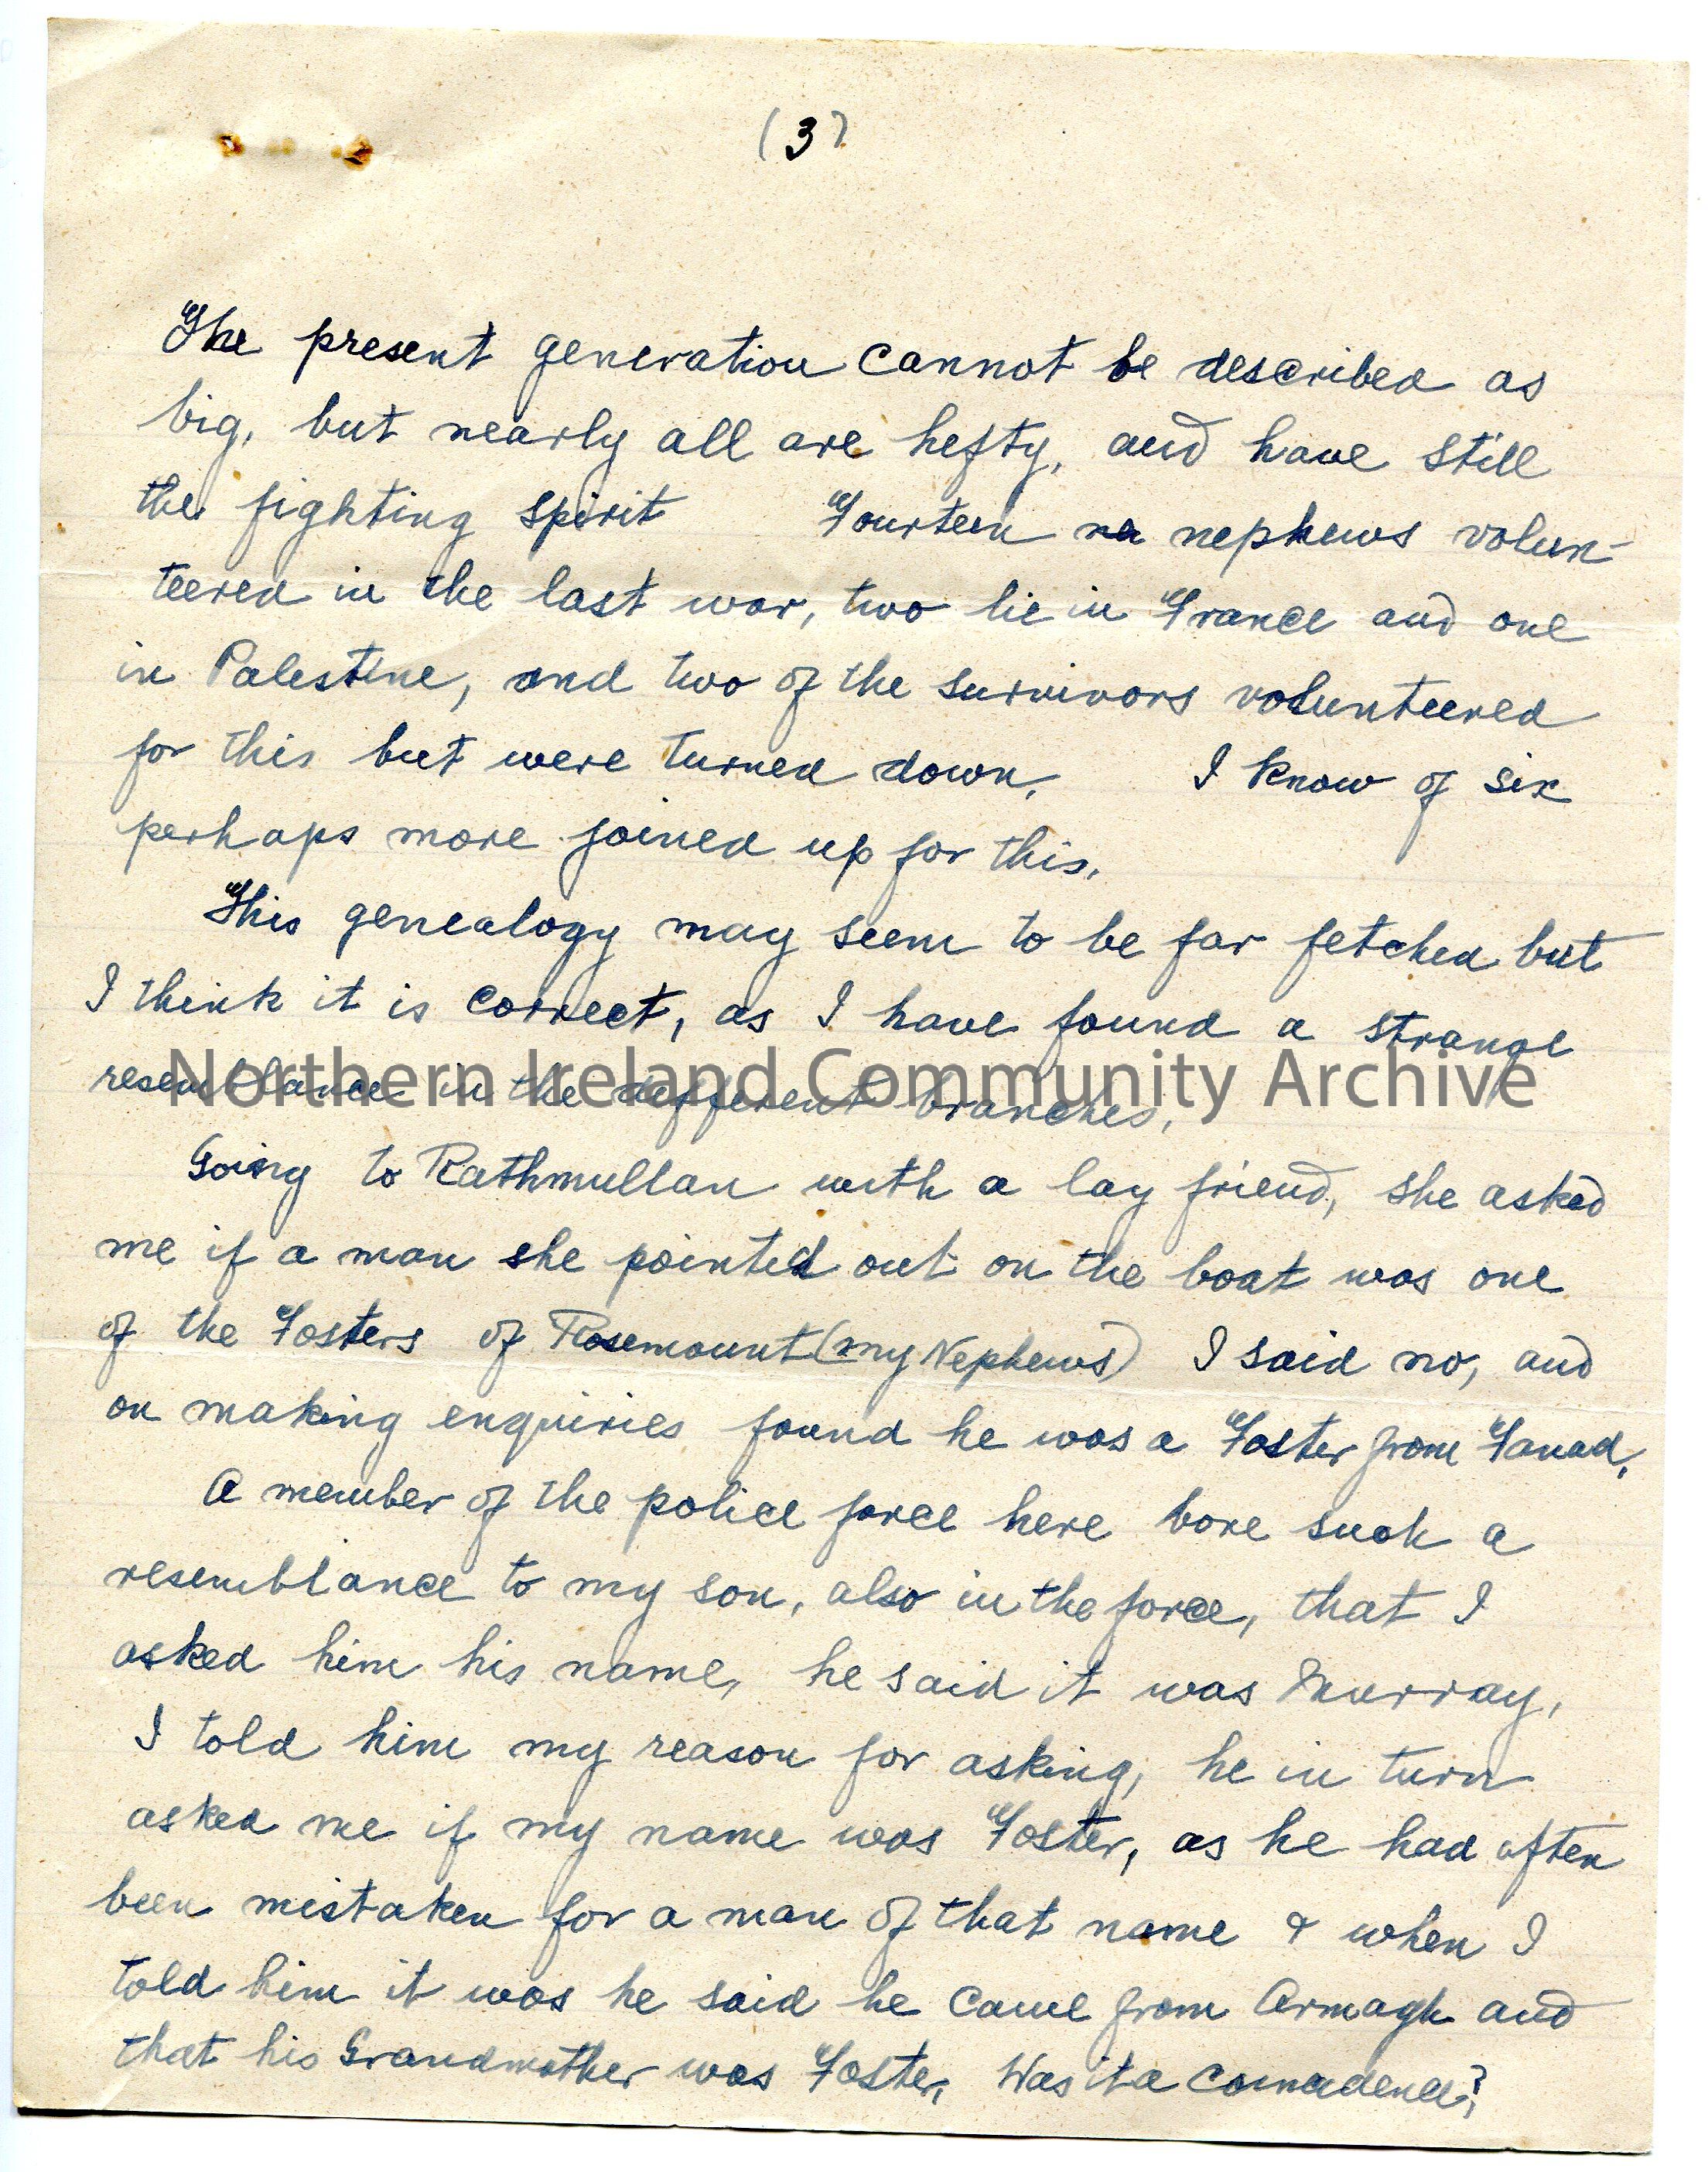 (3)
The present generation cannot be described as
big, but nearly all are hefty, and have still
the fighting spirit Fourteen ne nephews volun-
teered in the last war, two lie in France and one
in Palestine, and two of the survivors volunteered
for this but were turned down. I know of six
perhaps more joined up for this.
This genealogy may seem to be far fetched but
I think it is correct, as I have found a strange
resemblance in the different branches.
Northern Ireland Community Archive
Going to Rathmullan with a lay friend, she asked
me if a man she pointed out on the boat was one
of the Fosters of Rosemount (my Nephews) I said no, and
on making enquiries found he was a Foster from Fanad.
A member of the police force here bore such a
resemblance to my son, also in the force, that I
asked him his name, he said it was Murray,
I told him my reason for asking, he in turn
asked me if my name was Foster, as he had often
been mistaken for a man of that name & when I
told him it was he said he came from Armagh and
that his Grandmother was Foster, Was it a comcidence?